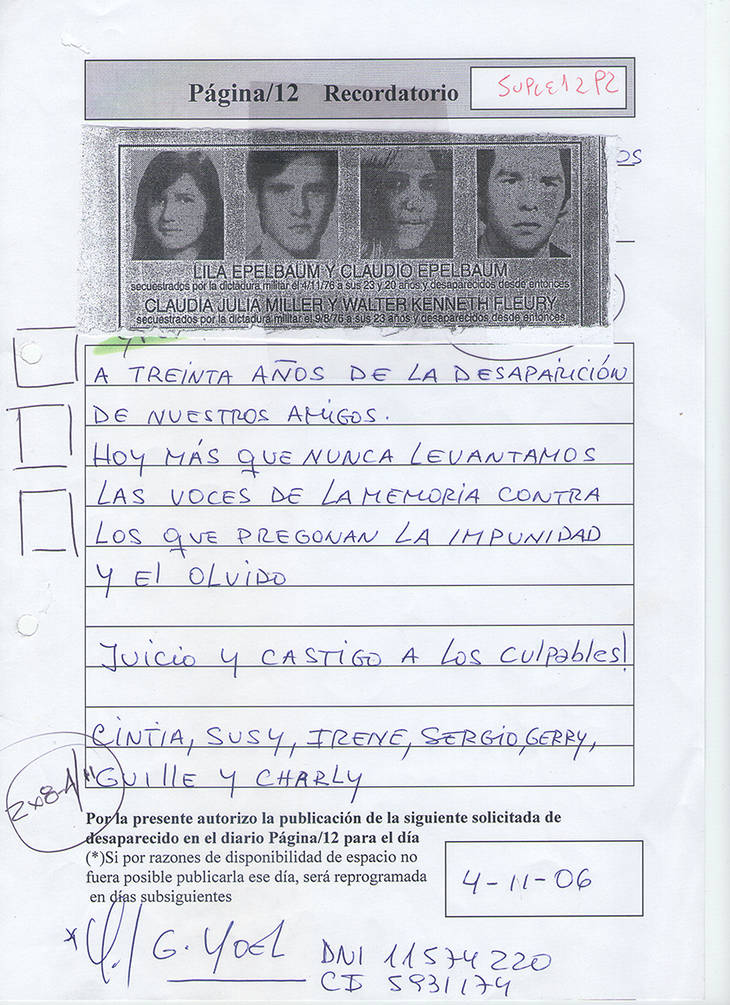 Página/12 Recordatorio
SUPLE12P2
OS
LILA EPELBAUM Y CLAUDIO EPELBAUM
secuestrados por la dictadura militar el 4/11/76 a sus 23 y 20 años y desaparecidos desde entonces
CLAUDIA JULIA MILLER Y WALTER KENNETH FLEURY
secuestrados por la dictadura militar el 9/8/76 a sus 23 años y desaparecidos desde entonces
A TREINTA AÑOS DE LA DESAPARICIÓN
DE NUESTROS AMIGOS.
HOY MÁS QUE NUNCA LEVANTAMOS
LAS VOCES DE LA MEMORIA CONTRA
LOS QUE PREGONAN LA IMPUNIDAD
Y El OLVIDO
JUICIO Y CASTIGO A LOS CULPABLES!
CINTIA, SUSY, IRENE, SERGIO, GERRY,
GUILLE Y CHARLY
Por la presente autorizo la publicación de la siguiente solicitada de
desaparecido en el diario Página/12 para el día
(*)Si por razones de disponibilidad de espacio no
fuera posible publicarla ese día, será reprogramada
en días subsiguientes
4-11-06
* G. YOEL
DNI 11574220
CI 5931174